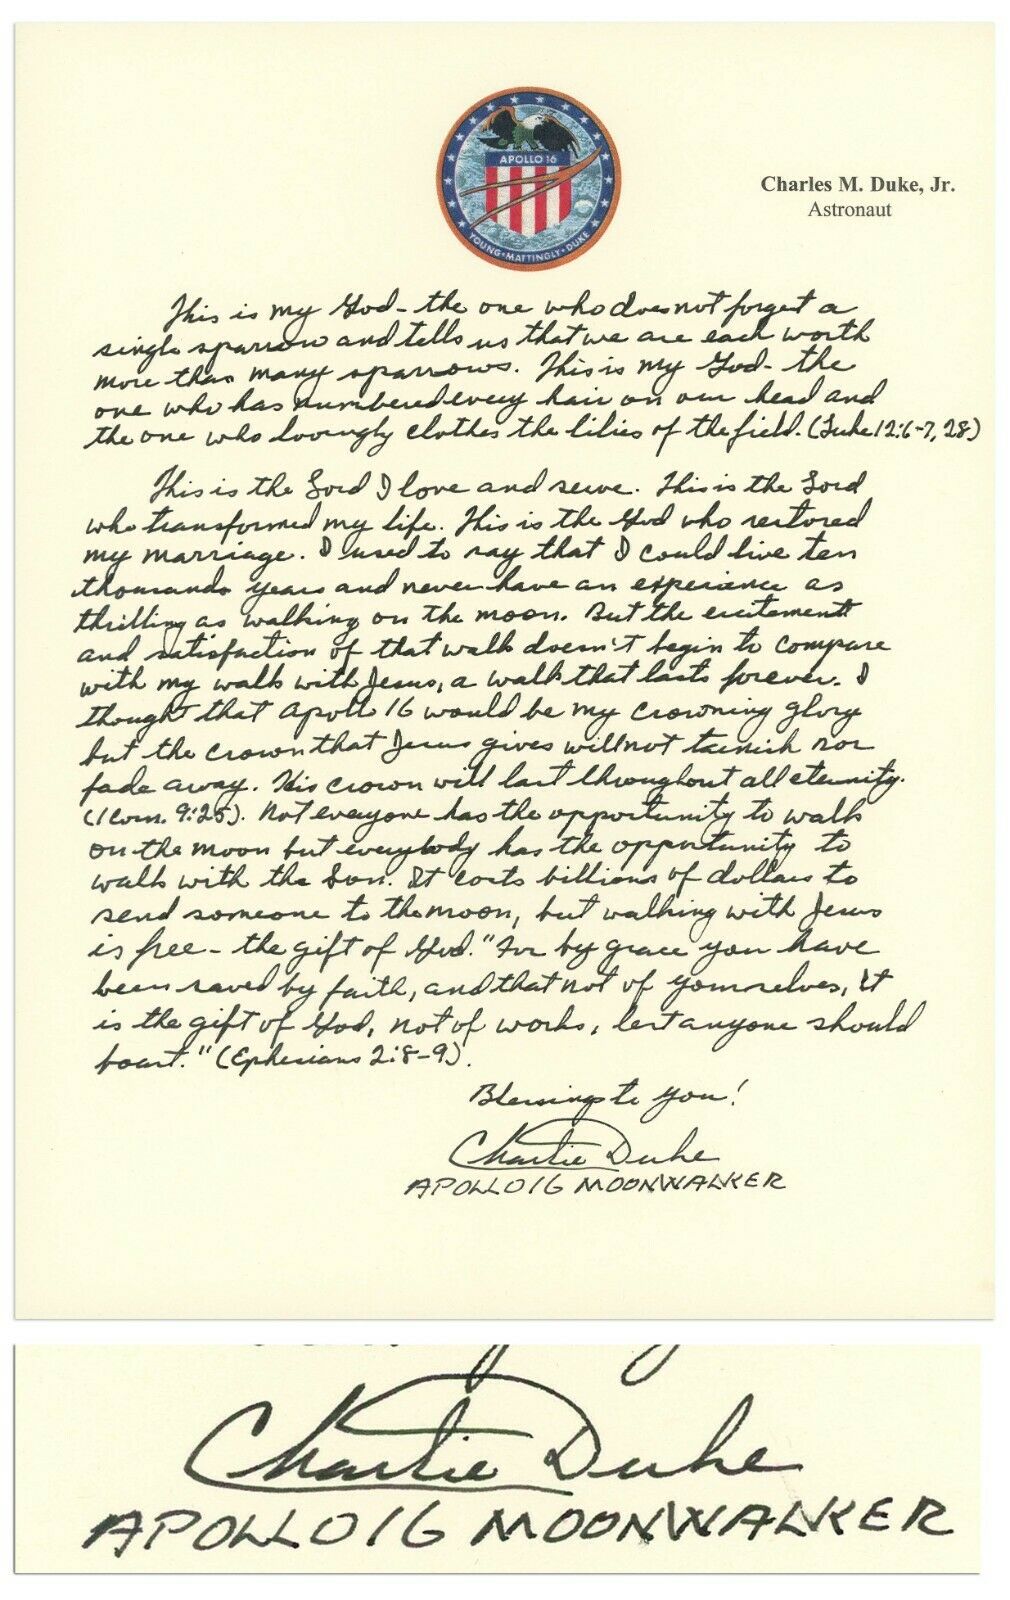 APOLLO 16
YOUNG • MATTINGLY • DUKE
Charles M. Duke, Jr.
Astronaut
This is my God - the one who does not forget a
single sparrow and tells us that we are each worth
more than many sparrows. This is my God - the
one who has numbered every hair on our head and
the one who lovingly clothes the lilies of the field. (Luke 12:6-7, 28)
This is the Lord I love and serve. This is the Lord
who transformed my life. This is the God who restored
my marriage. I used to say that I could live ten
thousands years and never have an experience as
thrilling as walking on the moon. But the excitement
and satisfaction of that walk doesn't begin to compare
with my walk with Jesus, a walk that lasts forever. I
thought that Apollo 16 would be my crowning glory
but the crown that Jesus gives will not tarnish nor
fade away. His crown will last throughout all eternity.
(1 Corn. 9:25). Not everyone has the opportunity to walk
on the moon but everybody has the opportunity to
walk with the Son. It costs billions of dollars to
send someone to the moon, but walking with Jesus
is free - the gift of God. "For by grace you have
been saved by faith, and that not of yourselves, it
is the gift of God, not of works, lest anyone should
boast." (Ephesians 2:8-9).
Blessings to you!
Charlie Duke
APOLLO 16 MOONWALKER
Charlie Duke
APOLLO 16 MOONWALKER